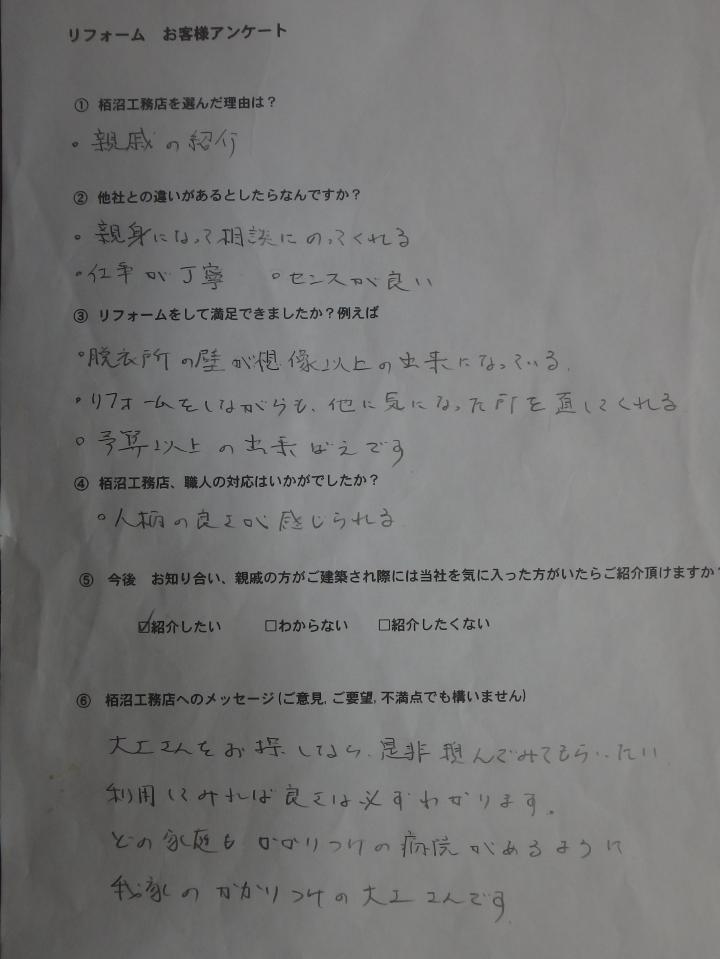 リフォーム　お客様アンケート
① 栢沼工務店を選んだ理由は？
・親戚の紹介
② 他社との違いがあるとしたらなんですか？
・親身になって相談にのってくれる
・仕事が丁寧　・センスが良い
③ リフォームをして満足できましたか？例えば
・脱衣所の壁が想像以上の出来になっている。
・リフォームをしながらも、他に気になった所を直してくれる
・予算以上の出来ばえです
④ 栢沼工務店、職人の対応はいかがでしたか？
・人柄の良さが感じられる
⑤ 今後　お知り合い、親戚の方がご建築され際には当社を気に入った方がいたらご紹介頂けますか？
☑紹介したい　□わからない　□紹介したくない
⑥ 栢沼工務店へのメッセージ（ご意見, ご要望, 不満点でも構いません）
大工さんをお探しなら、是非頼んでみてもらいたい
利用してみれば良さは必ずわかります。
どの家庭もかかりつけの病院があるように
我家のかかりつけの大工さんです